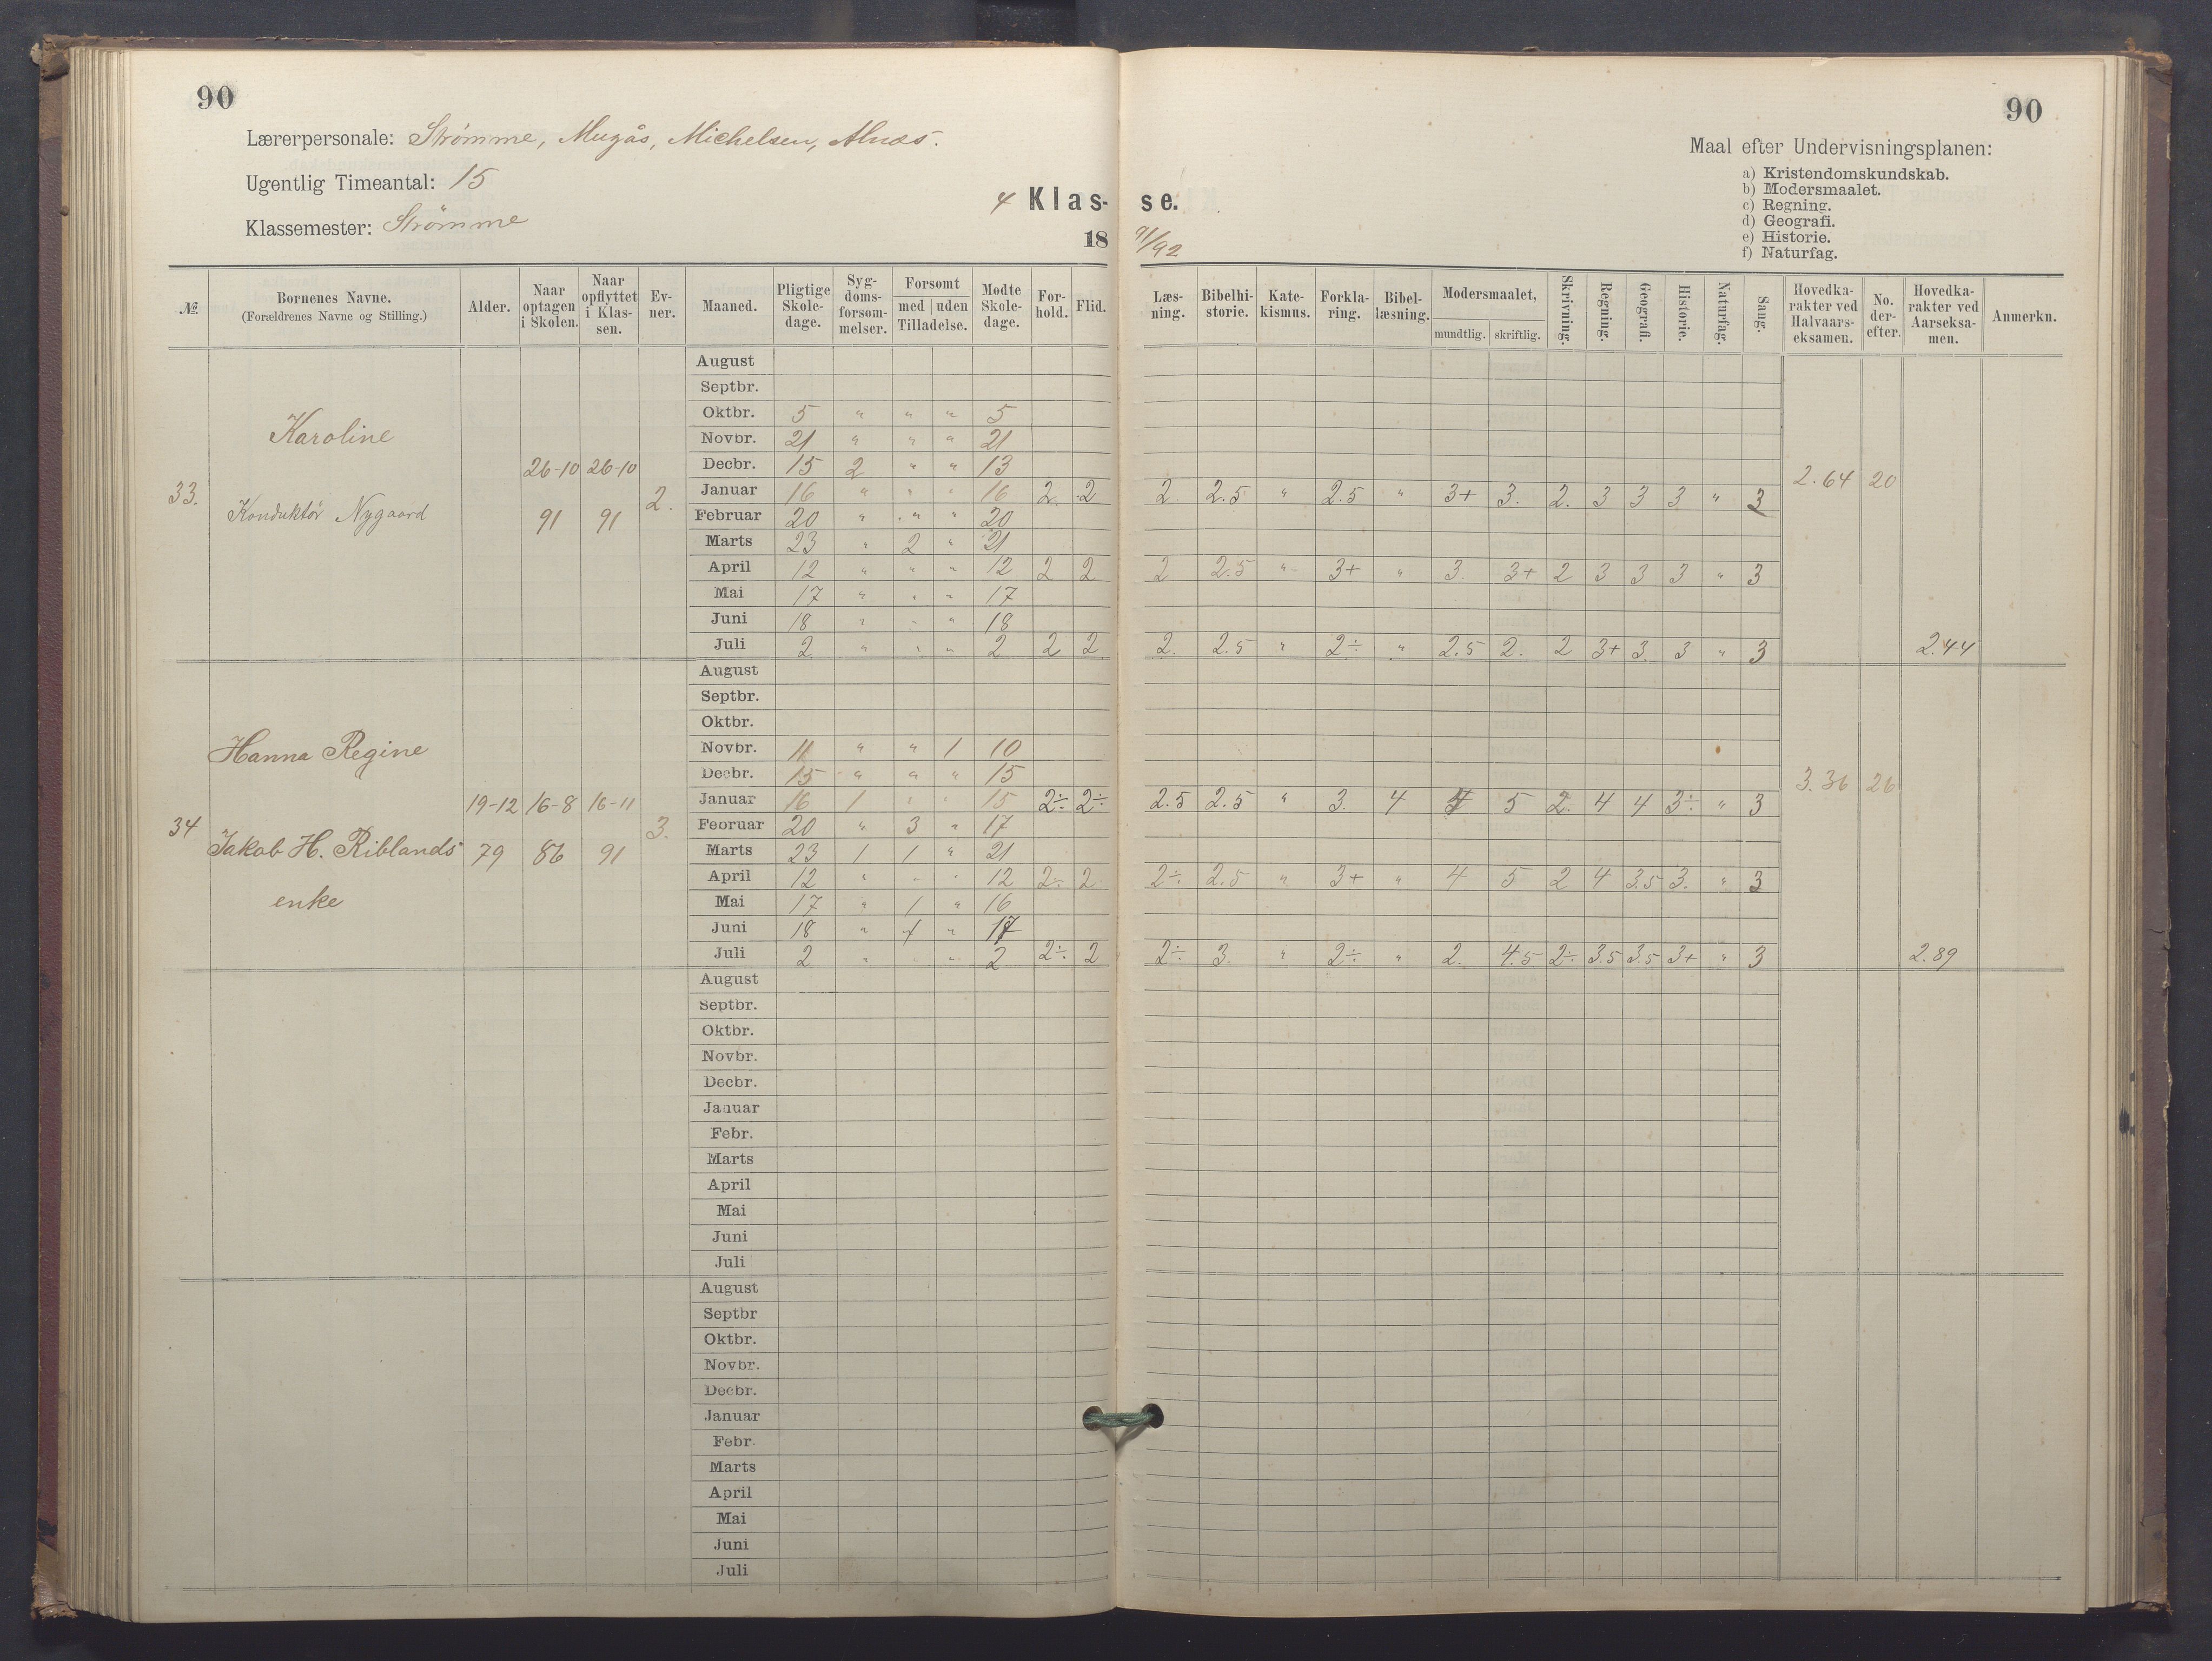 90
90
Lærerpersonale: Strømme, Mugås, Michelsen, Alnæs.
Ugentlig Timeantal: 15
Klassemester: Strømme
4 Klas- se.
18 91/92
Maal efter Undervisningsplanen:
a) Kristendomskundskab.
b) Modersmaalet.
c) Regning.
d) Geografi.
e) Historie.
f) Naturfag.
№ Børnenes Navne. (Forældrenes Navne og Stilling.) Alder. Naar optagen i Skolen. Naar opflyttet i Klassen. Evner. Maaned. Pligtige Skoledage. Sygdomsforsømmelser. Forsømt med uden Tilladelse. Mødte Skoledage. Forhold. Flid. Læsning. Bibelhistorie. Katekismus. Forklaring. Bibellæsning. Modersmaalet, mundtlig. skriftlig. Skrivning. Regning. Geografi. Historie. Naturfag. Sang. Hovedkarakter ved Halvaarseksamen. No. derefter. Hovedkarakter ved Aarseksamen. Anmerkn.
33. Karoline
Konduktør Nygaard
26-10 91 26-10 91 2. 2.64 20
August
Septbr.
Oktbr. 5 " " " 5
Novbr. 21 " " " 21
Decbr. 15 2 " " 13
Januar 16 " " " 16 2 2 2. 2.5 " 2.5 " 3+ 3. 2. 3 3 3 " 3
Februar 20 " " " 20
Marts 23 " 2 " 21
April 12 " " " 12 2 2 2 2.5 " 3+ " 3. 3+ 2 3 3 3 " 3
Mai 17 " " " 17
Juni 18 " " " 18
Juli 2 " " " 2 2 2 2. 2.5 " 2÷ " 2.5 2. 2 3+ 3. 3 " 3 2.44
34 Hanna Regine
Jakob H. Riblands
enke
19-12 79 16-8 86 16-11 91 3. 3.36 26
August
Septbr.
Oktbr.
Novbr. 11 " " 1 10
Decbr. 15 " " " 15
Januar 16 1 " " 15 2÷ 2÷ 2.5 2.5 " 3. 4 4 5 2. 4 4 3÷ " 3
Februar 20 " 3 " 17
Marts 23 1 1 " 21
April 12 " " " 12 2÷ 2 2÷ 2.5 " 3+ " 4 5 2 4 3.5 3. " 3
Mai 17 " 1 " 16
Juni 18 " 1 " 17
Juli 2 " " " 2 2÷ 2 2÷ 3. " 2÷ " 2. 4.5 2÷ 3.5 3.5 3+ " 3 2.89
August
Septbr.
Oktbr.
Novbr.
Decbr.
Januar
Febr.
Marts
April
Mai
Juni
Juli
August
Septbr
Oktbr.
Novbr.
Decbr.
Januar
Febr.
Marts
April
Mai
Juni
Juli